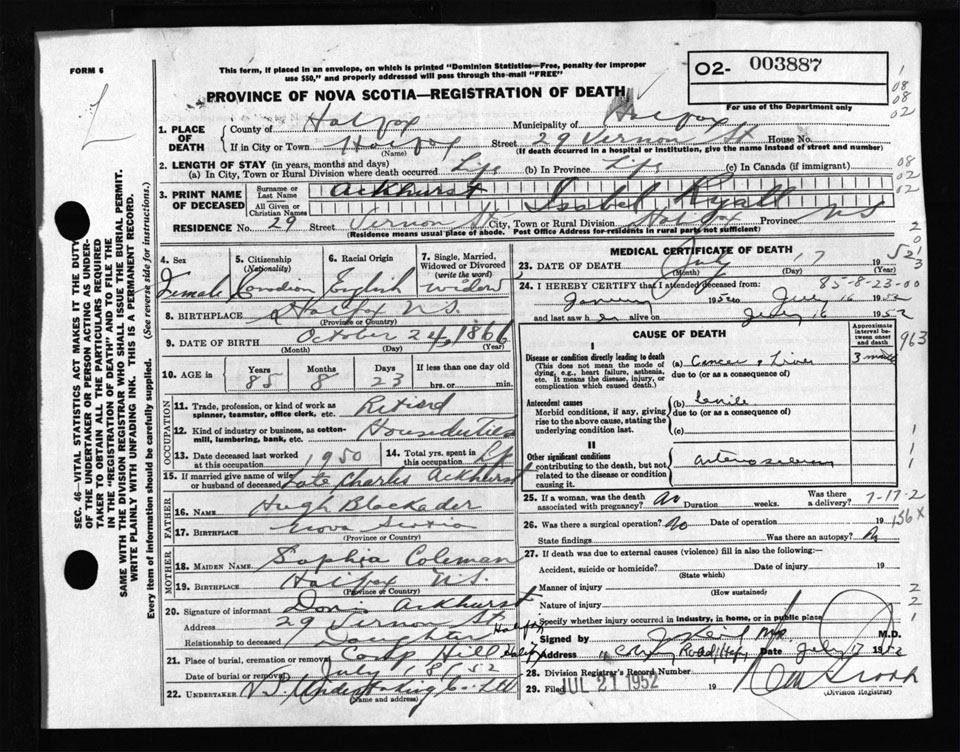 FORM 6
This form, if placed in an envelope, on which is printed "Dominion Statistics—Free, penalty for improper
use $50," and properly addressed will pass through the mail "FREE"
PROVINCE OF NOVA SCOTIA—REGISTRATION OF DEATH
O2- 003887
For use of the Department only
08
08
02
1. PLACE OF DEATH
County of Halifax Municipality of Halifax
If in City or Town Halifax Street 29 Vernon St House No.
(Name) (If death occurred in a hospital or institution, give the name instead of street and number)
2. LENGTH OF STAY (in years, months and days)
(a) In City, Town or Rural Division where death occurred Life (b) In Province Life (c) In Canada (if immigrant)
08
02
02
3. PRINT NAME OF DECEASED
Surname or Last Name Ackhurst
All Given or Christian Names Isabel Ryall
RESIDENCE No. 29 Street Vernon St City, Town or Rural Division Halifax Province N.S
(Residence means usual place of abode. Post Office Address for residents in rural parts not sufficient)
4. Sex Female
5. Citizenship (Nationality) Canadian
6. Racial Origin English
7. Single, Married, Widowed or Divorced (write the word) widow
8. BIRTHPLACE Halifax N.S.
(Province or Country)
9. DATE OF BIRTH October 24 1866
(Month) (Day) (Year)
10. AGE in Years 85 Months 8 Days 23 If less than one day
hrs. or min.
OCCUPATION
11. Trade, profession, or kind of work as spinner, teamster, office clerk, etc. Retired
12. Kind of industry or business, as cotton-mill, lumbering, bank, etc.
13. Date deceased last worked at this occupation 1950
14. Total yrs. spent in this occupation Life
15. If married give name of wife or husband of deceased Late Charles Ackhurst
FATHER
16. NAME Hugh Blackader
17. BIRTHPLACE Nova Scotia
(Province or Country)
MOTHER
18. MAIDEN NAME Sophia Coleman
19. BIRTHPLACE Halifax N.S.
(Province or Country)
20. Signature of informant Doris Ackhurst
Address 29 Vernon St Halifax
Relationship to deceased Daughter
21. Place of burial, cremation or removal Camp Hill Halifax
Date of burial or removal July 18 52
22. UNDERTAKER N.S. Undertaking Co. Ltd
(Name and address)
MEDICAL CERTIFICATE OF DEATH
23. DATE OF DEATH July 17 1952
(Month) (Day) (Year)
85-8-23-00
24. I HEREBY CERTIFY that I attended deceased from:
January 1952 to July 16 1952
and last saw her alive on July 16 1952
CAUSE OF DEATH
Approximate interval between onset and death
963
I
Disease or condition directly leading to death
(This does not mean the mode of dying, e.g., heart failure, asthenia, etc. It means the disease, injury, or complication which caused death.)
(a) Cancer of Liver 3 months
due to (or as a consequence of)
Antecedent causes
Morbid conditions, if any, giving rise to the above cause, stating the underlying condition last.
(b) Senile
due to (or as a consequence of)
(c)
II
Other significant conditions
contributing to the death, but not related to the disease or condition causing it.
25. If a woman, was the death associated with pregnancy? No Duration weeks. Was there a delivery?
7-17-2
26. Was there a surgical operation? No Date of operation 19
156X
State findings Was there an autopsy? No
27. If death was due to external causes (violence) fill in also the following:—
Accident, suicide or homicide? Date of injury 19
(State which)
Manner of injury
(How sustained)
Nature of injury
Specify whether injury occurred in industry, in home, or in public place
Signed by M.D.
Address Road Date July 17 1952
28. Division Registrar's Record Number
29. Filed JUL 21 1952 19
(Division Registrar)
SEC. 46—VITAL STATISTICS ACT MAKES IT THE DUTY
OF THE UNDERTAKER OR PERSON ACTING AS UNDER-
TAKER TO OBTAIN ALL THE PARTICULARS REQUIRED
IN THE "REGISTRATION OF DEATH" AND TO FILE THE
SAME WITH THE DIVISION REGISTRAR WHO SHALL ISSUE THE BURIAL PERMIT.
WRITE PLAINLY WITH UNFADING INK. THIS IS A PERMANENT RECORD.
Every item of information should be carefully supplied. (See reverse side for instructions.)